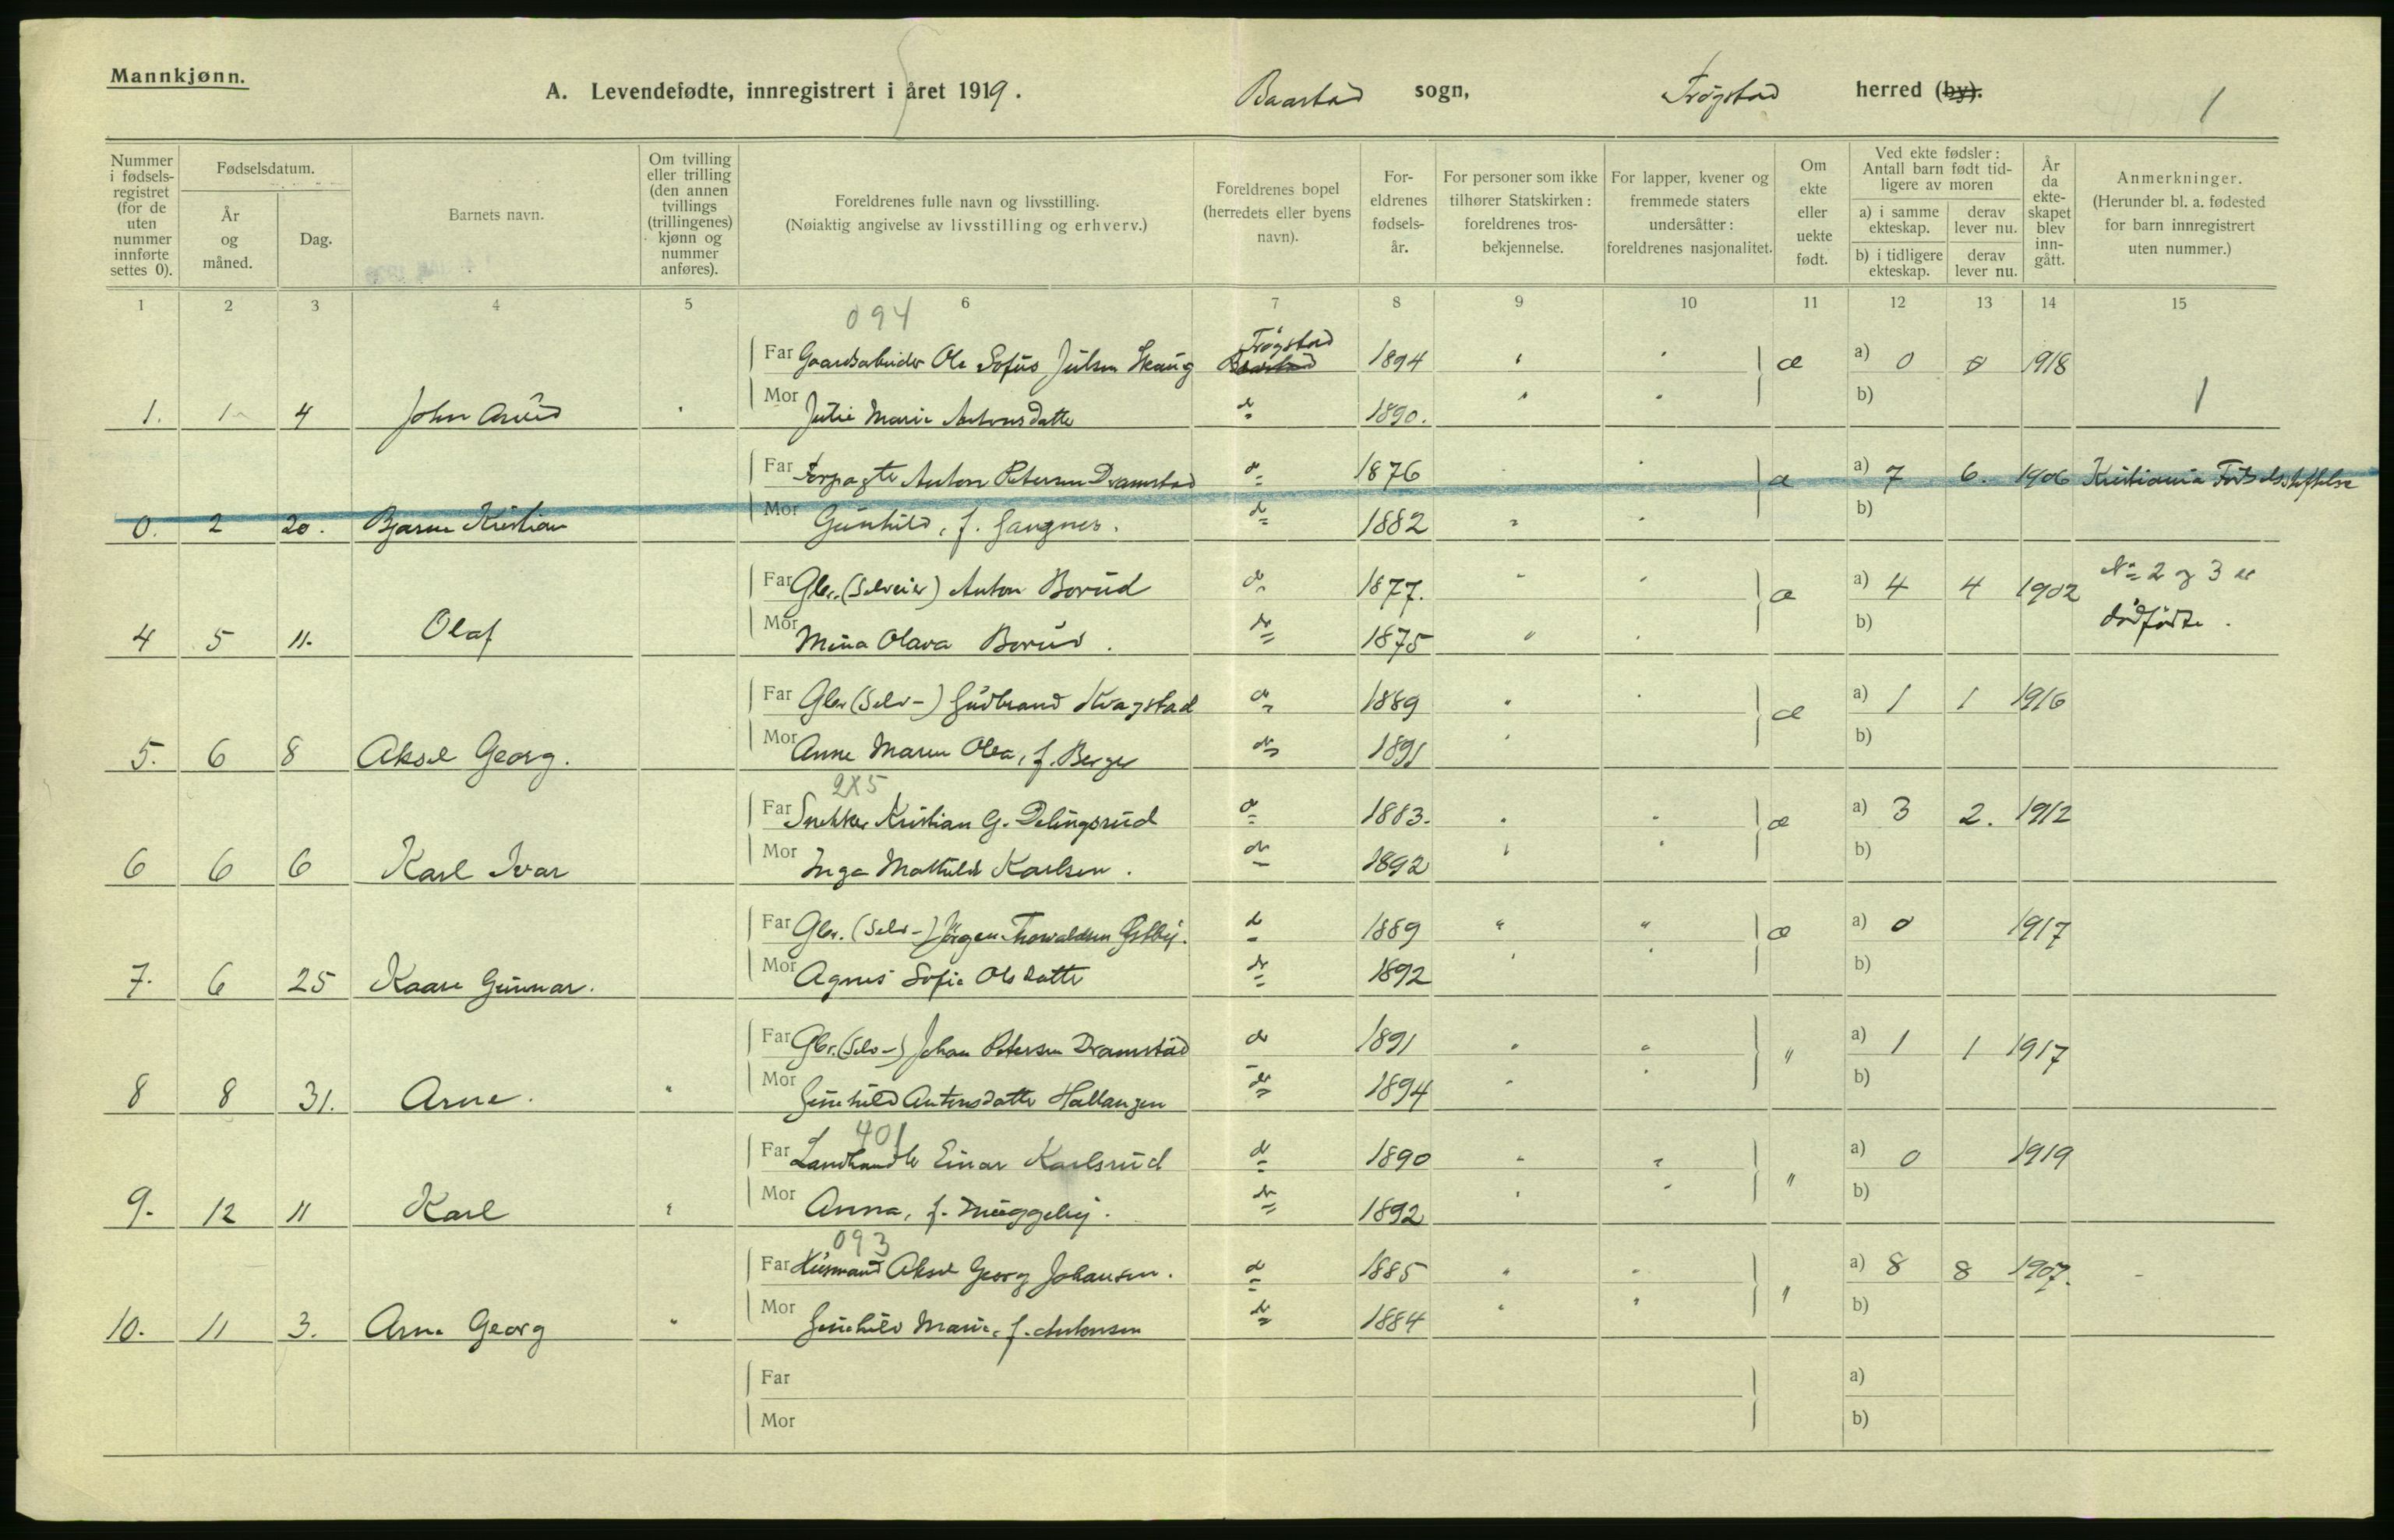 Mannkjønn.
A. Levendefødte, innregistrert i året 1919. Baastad sogn, Trøgstad herred (by). 1
Nummer i fødselsregistret (for de uten nummer innførte settes 0).
Fødselsdatum.
År og måned.
Dag.
Barnets navn.
Om tvilling eller trilling (den annen tvillings (trillingenes) kjønn og nummer anføres).
Foreldrenes fulle navn og livsstilling.
(Nøiaktig angivelse av livsstilling og erhverv.)
Foreldrenes bopel (herredets eller byens navn).
Foreldrenes fødselsår.
For personer som ikke tilhører Statskirken: foreldrenes trosbekjennelse.
For lapper, kvener og fremmede staters undersåtter: foreldrenes nasjonalitet.
Om ekte eller uekte født.
Ved ekte fødsler: Antall barn født tidligere av moren
a) i samme ekteskap. derav lever nu.
b) i tidligere ekteskap. derav lever nu.
År da ekteskapet blev inngått.
Anmerkninger.
(Herunder bl. a. fødested for barn innregistrert uten nummer.)
1 2 3 4 5 6 7 8 9 10 11 12 13 14 15
094
Trøgstad
Far Gaardsarbeider Ole Sofus Julsen Skaug Baastad 1894 " " æ a) 0 0 1918
1. 1 4 John Arvid " Mor Julie Marie Antonsdatter do 1890. " " b) 1
Far Forpagter Anton Petersen Dramstad do 1876 " " æ a) 7 6. 1906 Kristiania Fødselsstiftelse
0. 2 20. Bjarne Kristian Mor Gunhild, f. Gangnes. do 1882 " " b)
Far Gbr. (Selveier) Anton Borud do 1877. " " æ a) 4 4 1902 No 2 og 3 er
4 5 11. Olaf Mor Mina Olava Borud. do 1875 " " b) dødfødte.
Far Gbr (Selv-) Gudbrand Kvagstad do 1889 " " æ a) 1 1 1916
5. 6 8 Aksel Georg. Mor Anne Maren Olea, f. Berger do 1891 " b)
2X5
Far Snekker Kristian G. Delingsrud do 1883. " " æ a) 3 2. 1912
6 6 6 Karl Ivar Mor Inga Mathilde Karlsen. do 1892 " " b)
Far Gbr. (Selv-) Jørgen Thorvaldsen Østby. do 1889 " " æ a) 0 1917
7. 6 25 Kaare Gunnar. Mor Agnes Sofie Olsdatter do 1892 " " b)
Far Gbr. (Selv-) Johan Petersen Dramstad do 1891 " " " a) 1 1 1917
8 8 31. Arne. " Mor Gunhild Antonsdatter Hallangen do 1894 " " b)
401
Far Landhandler Einar Karlsrud do 1890 " " " a) 0 1919
9. 12 11 Karl " Mor Anna, f. Muggeby. do 1892 " " b)
093
Far Husmand Aksel Georg Johansen. do 1885 " " " a) 8 8 1907. -
10. 11 3. Arne Georg " Mor Gunhild Marie, f. Antonsen do 1884 " " b)
Far a)
Mor b)